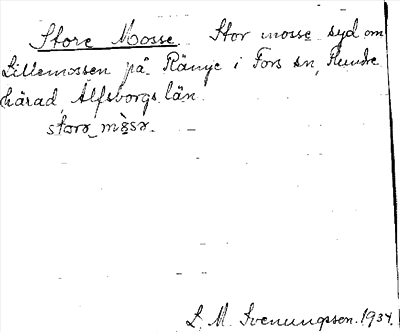 Store Mosse. Stor mosse syd om
Lillemossen på Ränge i Fors sn, Flundre
härad, Älfsborgs län.
storə mòsə.
L. M. Svenungsson. 1934.